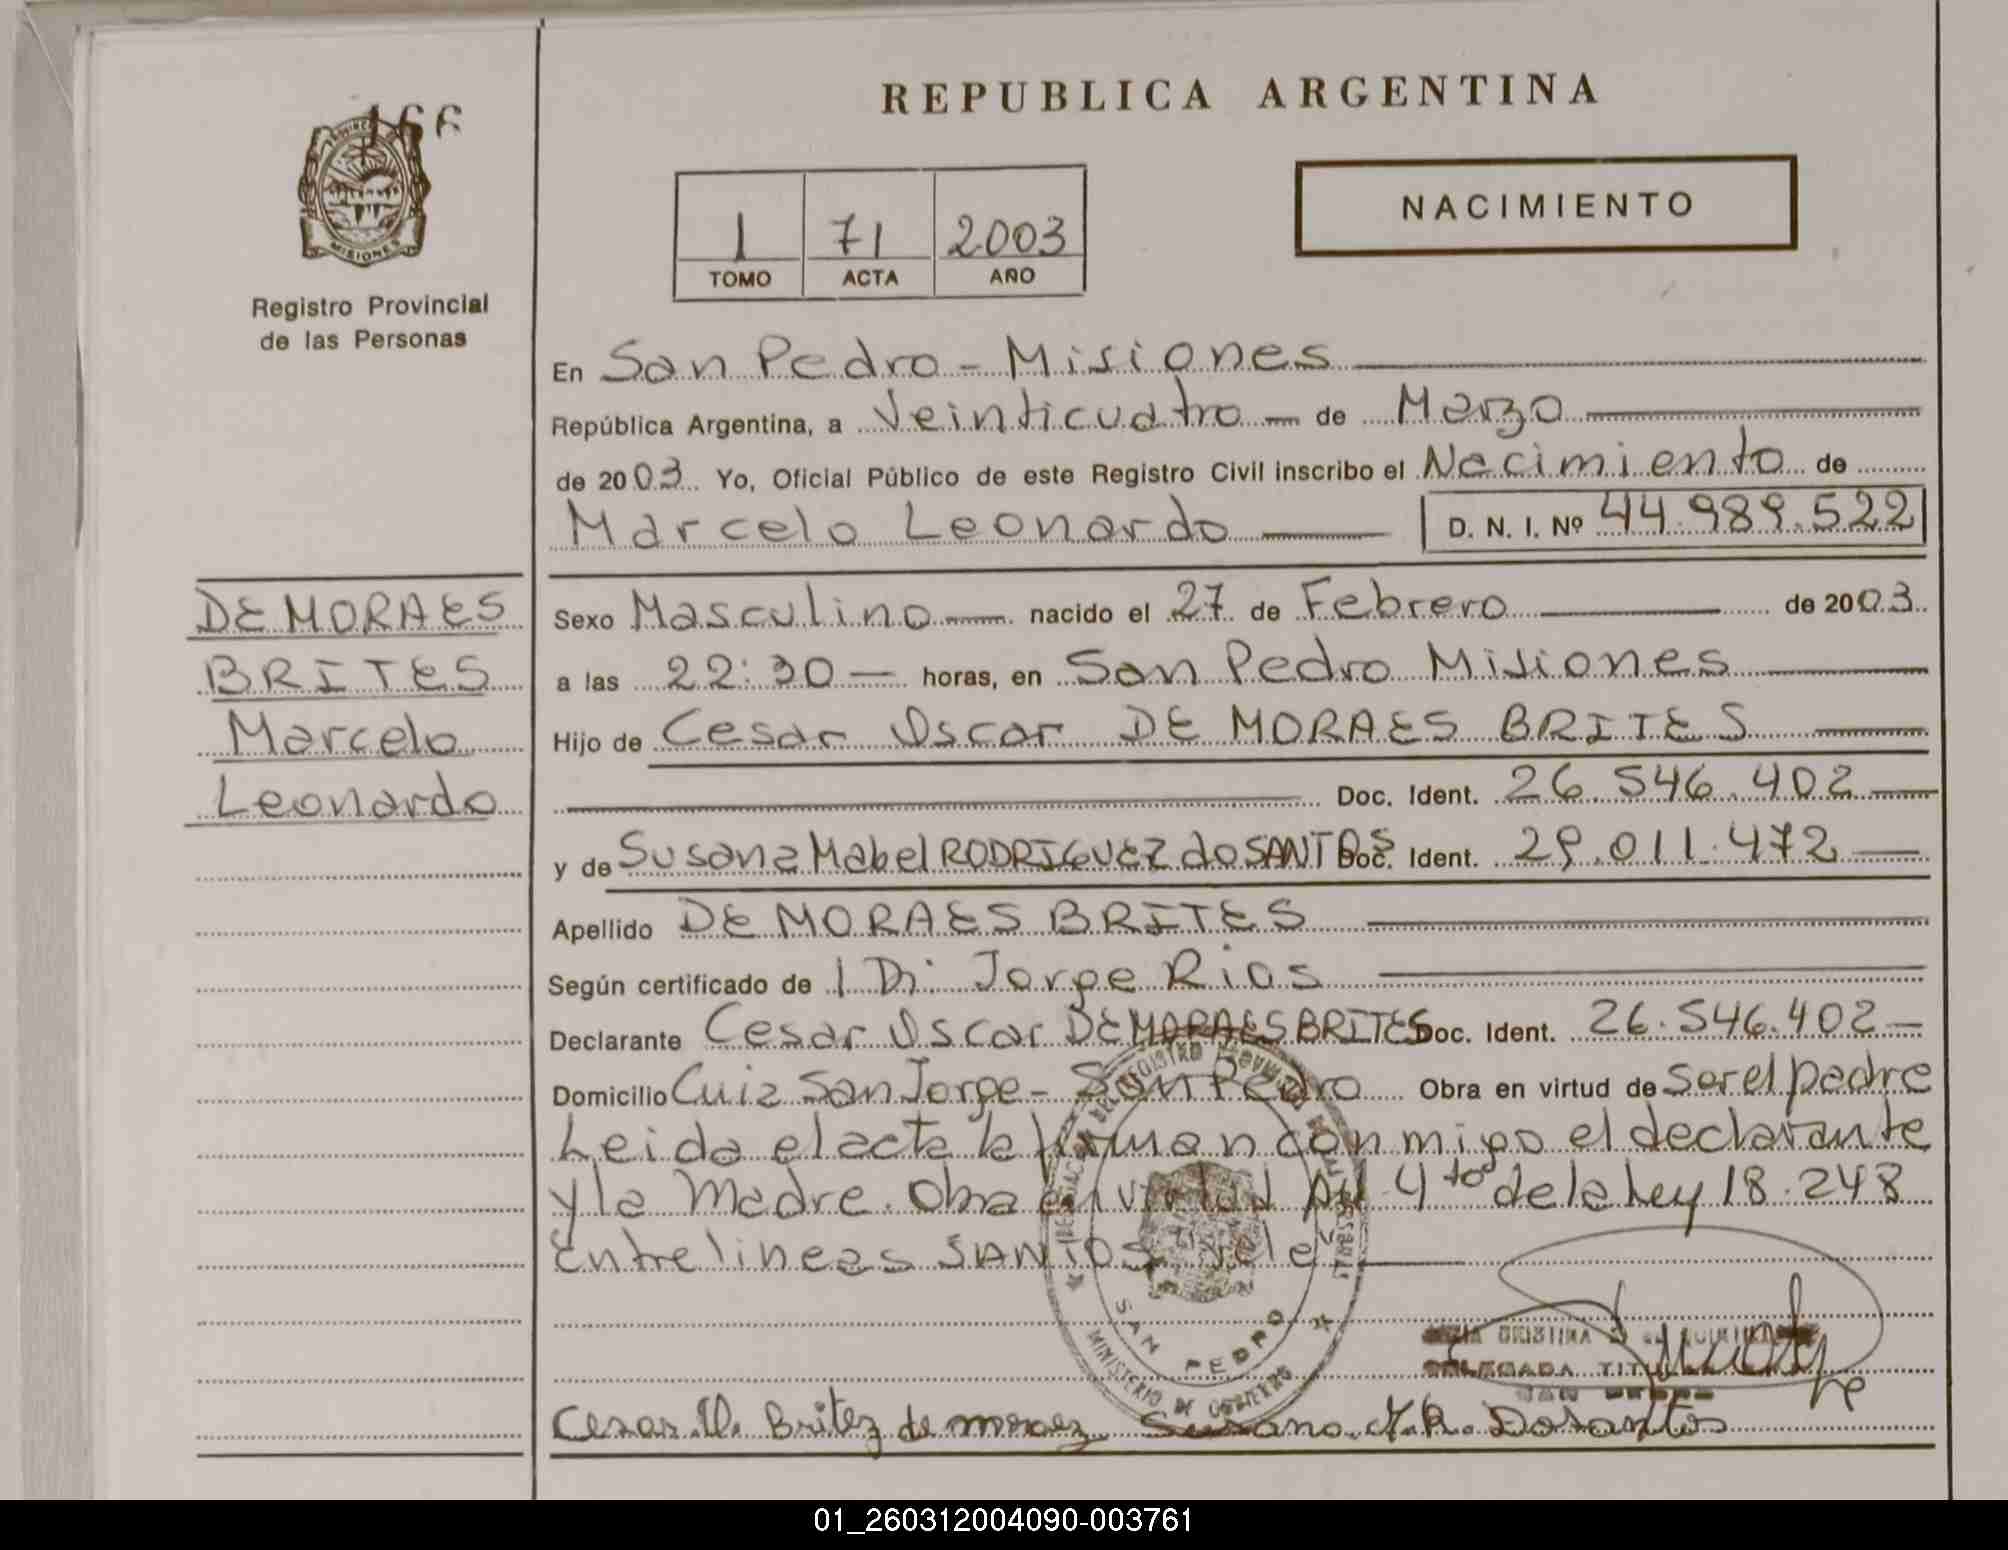 166
PROVINCIA DE
MISIONES
Registro Provincial
de las Personas
DE MORAES
BRITES
Marcelo
Leonardo
REPUBLICA ARGENTINA
1 71 2003
TOMO ACTA AÑO
NACIMIENTO
En San Pedro - Misiones
República Argentina, a Veinticuatro — de Marzo
de 2003 Yo, Oficial Público de este Registro Civil inscribo el Nacimiento de
Marcelo Leonardo — D. N. I. Nº 44.989.522
Sexo Masculino — nacido el 27 de Febrero — de 2003
a las 22:30 — horas, en San Pedro Misiones
Hijo de Cesar Oscar DE MORAES BRITES
Doc. Ident. 26.546.402 —
y de Susana Mabel RODRIGUEZ do SANTOS Doc. Ident. 29.011.472 —
Apellido DE MORAES BRITES
Según certificado de 1 Dr. Jorge Rios
Declarante Cesar Oscar DE MORAES BRITES Doc. Ident. 26.546.402 —
Domicilio Cuiz San Jorge - San Pedro Obra en virtud de Ser el padre
Leida el acta la firman conmigo el declarante
y la Madre. Obra en virtud Art. 4to de la Ley 18.248
Entrelineas SANTOS "Vale"
SAN PEDRO
MINISTERIO DE GOBIERNO
CRISTINA
DELEGADA TITULAR
SAN PEDRO
Cesar O. Britez de moraez Susana M.R. Dosantos
01_260312004090-003761